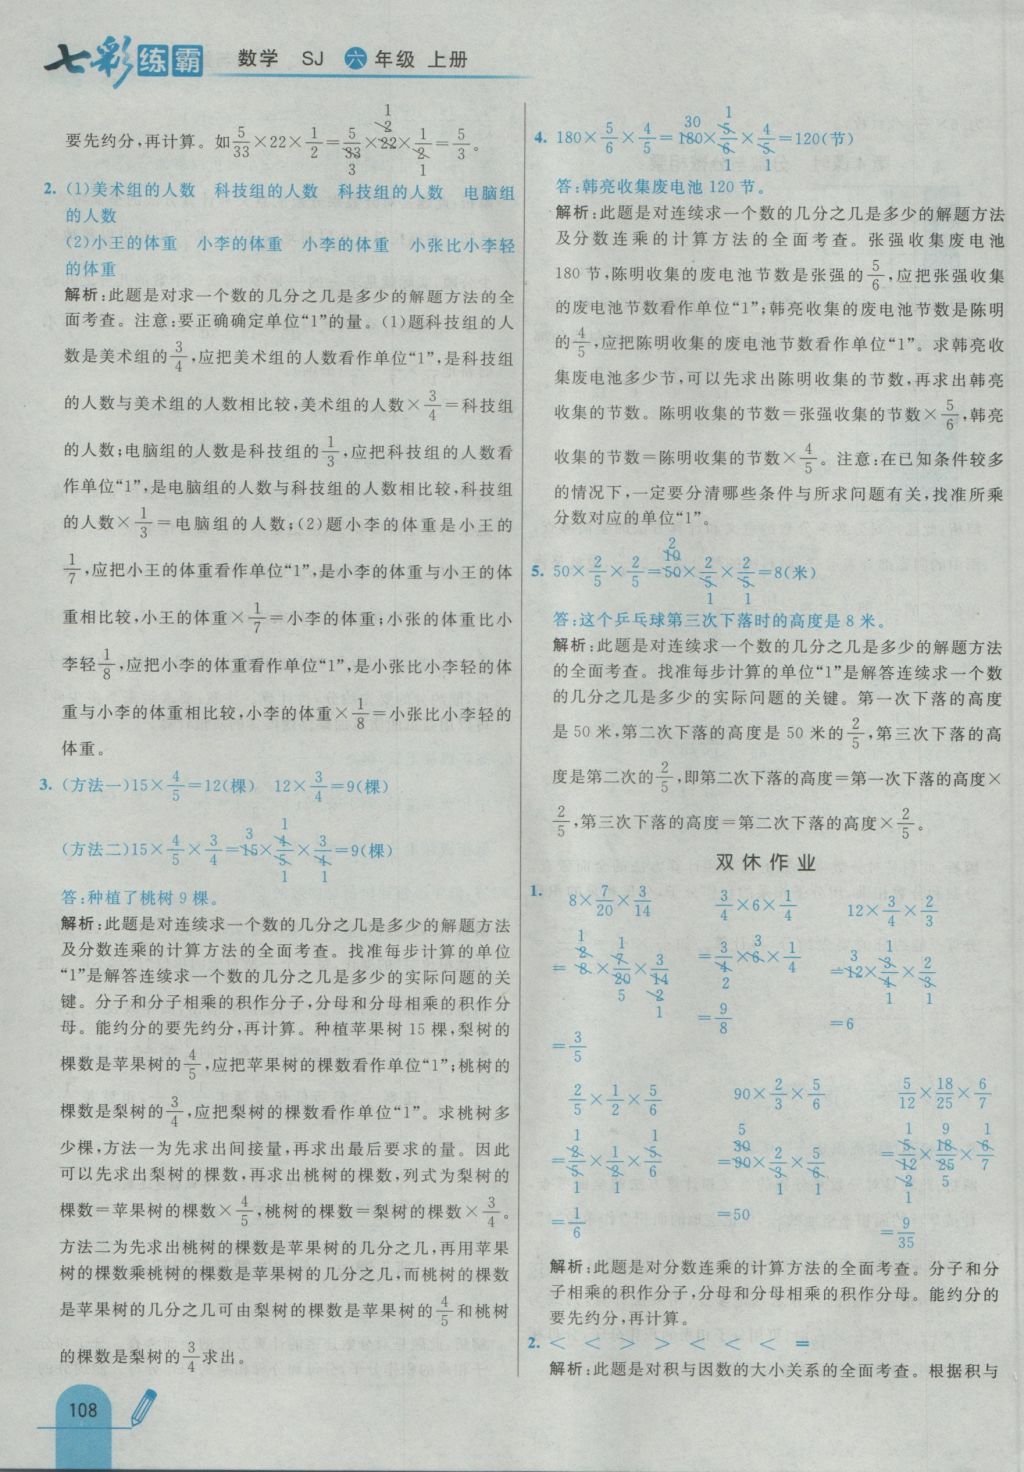 七彩练霸 数学 SJ 六年级 上册
要先约分,再计算。如5/33×22×1/2=5/33×22×1/2=5/3。
2. (1)美术组的人数 科技组的人数 科技组的人数 电脑组
的人数
(2)小王的体重 小李的体重 小李的体重 小张比小李轻
的体重
解析:此题是对求一个数的几分之几是多少的解题方法的全
面考查。注意:要正确确定单位“1”的量。(1)题科技组的人
数是美术组的3/4,应把美术组的人数看作单位“1”,是科技组
的人数与美术组的人数相比较,美术组的人数×3/4=科技组
的人数;电脑组的人数是科技组的1/3,应把科技组的人数看
作单位“1”,是电脑组的人数与科技组的人数相比较,科技组
的人数×1/3=电脑组的人数;(2)题小李的体重是小王的
1/7,应把小王的体重看作单位“1”,是小李的体重与小王的体
重相比较,小王的体重×1/7=小李的体重;小张的体重比小
李轻1/8,应把小李的体重看作单位“1”,是小张比小李轻的体
重与小李的体重相比较,小李的体重×1/8=小张比小李轻的
体重。
3. (方法一)15×4/5=12(棵) 12×3/4=9(棵)
(方法二)15×4/5×3/4=15×4/5×3/4=9(棵)
答:种植了桃树9棵。
解析:此题是对连续求一个数的几分之几是多少的解题方法
及分数连乘的计算方法的全面考查。找准每步计算的单位
“1”是解答连续求一个数的几分之几是多少的实际问题的关
键。分子和分子相乘的积作分子,分母和分母相乘的积作分
母。能约分的要先约分,再计算。种植苹果树15棵,梨树的
棵数是苹果树的4/5,应把苹果树的棵数看作单位“1”;桃树的
棵数是梨树的3/4,应把梨树的棵数看作单位“1”。求桃树多
少棵,方法一为先求出间接量,再求出最后要求的量。因此
可以先求出梨树的棵数,再求出桃树的棵数,列式为梨树的
棵数=苹果树的棵数×4/5,桃树的棵数=梨树的棵数×3/4。
方法二为先求出桃树的棵数是苹果树的几分之几,再用苹果
树的棵数乘桃树的棵数是苹果树的几分之几,而桃树的棵数
是苹果树的几分之几可由梨树的棵数是苹果树的4/5和桃树
的棵数是梨树的3/4求出。
108
4. 180×5/6×4/5=180×5/6×4/5=120(节)
答:韩亮收集废电池120节。
解析:此题是对连续求一个数的几分之几是多少的解题方法
及分数连乘的计算方法的全面考查。张强收集废电池
180节,陈明收集的废电池节数是张强的5/6,应把张强收集
的废电池节数看作单位“1”;韩亮收集的废电池节数是陈明
的4/5,应把陈明收集的废电池节数看作单位“1”。求韩亮收
集废电池多少节,可以先求出陈明收集的节数,再求出韩亮
收集的节数。陈明收集的节数=张强收集的节数×5/6,韩亮
收集的节数=陈明收集的节数×4/5。注意:在已知条件较多
的情况下,一定要分清哪些条件与所求问题有关,找准所乘
分数对应的单位“1”。
5. 50×2/5×2/5=50×2/5×2/5=8(米)
答:这个乒乓球第三次下落时的高度是8米。
解析:此题是对连续求一个数的几分之几是多少的解题方法
的全面考查。找准每步计算的单位“1”是解答连续求一个数
的几分之几是多少的实际问题的关键。第一次下落的高度
是50米,第二次下落的高度是50米的2/5,第三次下落的高
度是第二次的2/5,即第二次下落的高度=第一次下落的高度×
2/5,第三次下落的高度=第二次下落的高度×2/5。
双休作业
1. 8×7/20×3/14 3/4×6×1/4 12×3/4×2/3
=8×7/20×3/14 =3/4×6×1/4 =12×3/4×2/3
=3/5 =9/8 =6
2/5×1/2×5/6 90×2/3×5/6 5/12×18/25×6/7
=2/5×1/2×5/6 =90×2/3×5/6 =5/12×18/25×6/7
=1/6 =50 =9/35
解析:此题是对分数连乘的计算方法的全面考查。分子和分
子相乘的积作分子,分母和分母相乘的积作分母。能约分的
要先约分,再计算。
2. < < > > < < < =
解析:此题是对积与因数的大小关系的全面考查。根据积与